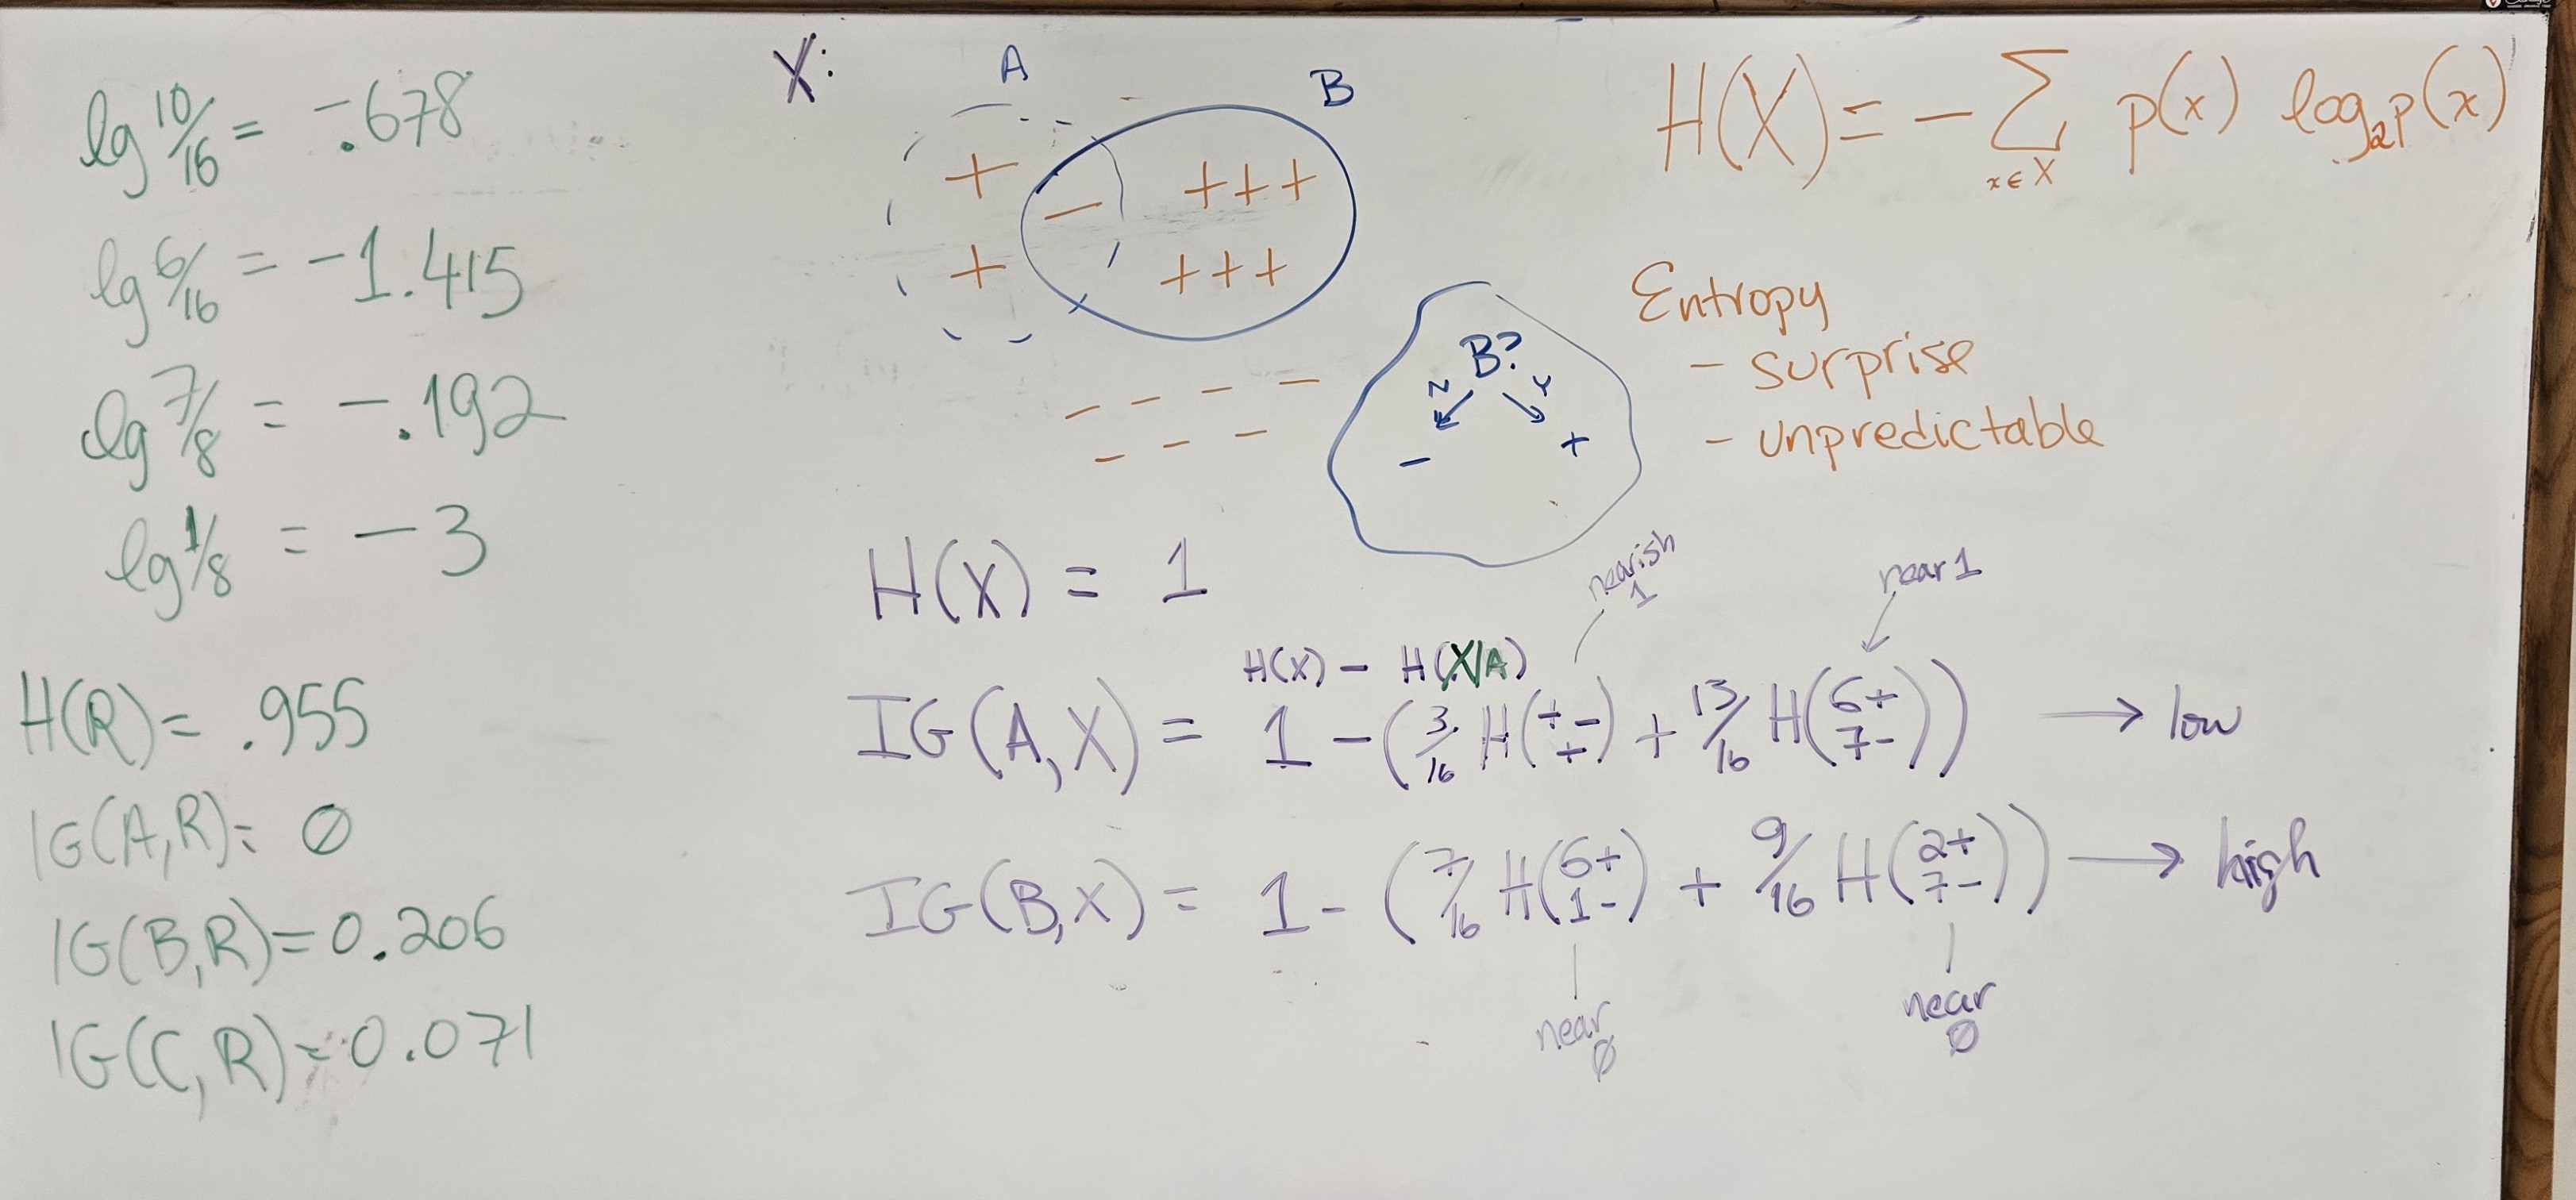 lg 10/16 = -.678
lg 6/16 = -1.415
lg 7/8 = -.192
lg 1/8 = -3
H(R) = .955
IG(A,R) = ∅
IG(B,R) = 0.206
IG(C,R) = 0.071
X:
A
B
+ − +++
+ +++
− − − −
− − −
B?
N Y
− +
H(X) = − ∑ p(x) log₂p(x)
x∈X
Entropy
- surprise
- unpredictable
H(X) = 1
nearish
1
near 1
H(X) − H(X|A)
IG(A,X) = 1 − (3/16 H(+ − +) + 13/16 H(6+ 7−)) → low
IG(B,X) = 1 − (7/16 H(6+ 1−) + 9/16 H(2+ 7−)) → high
near
∅
near
∅